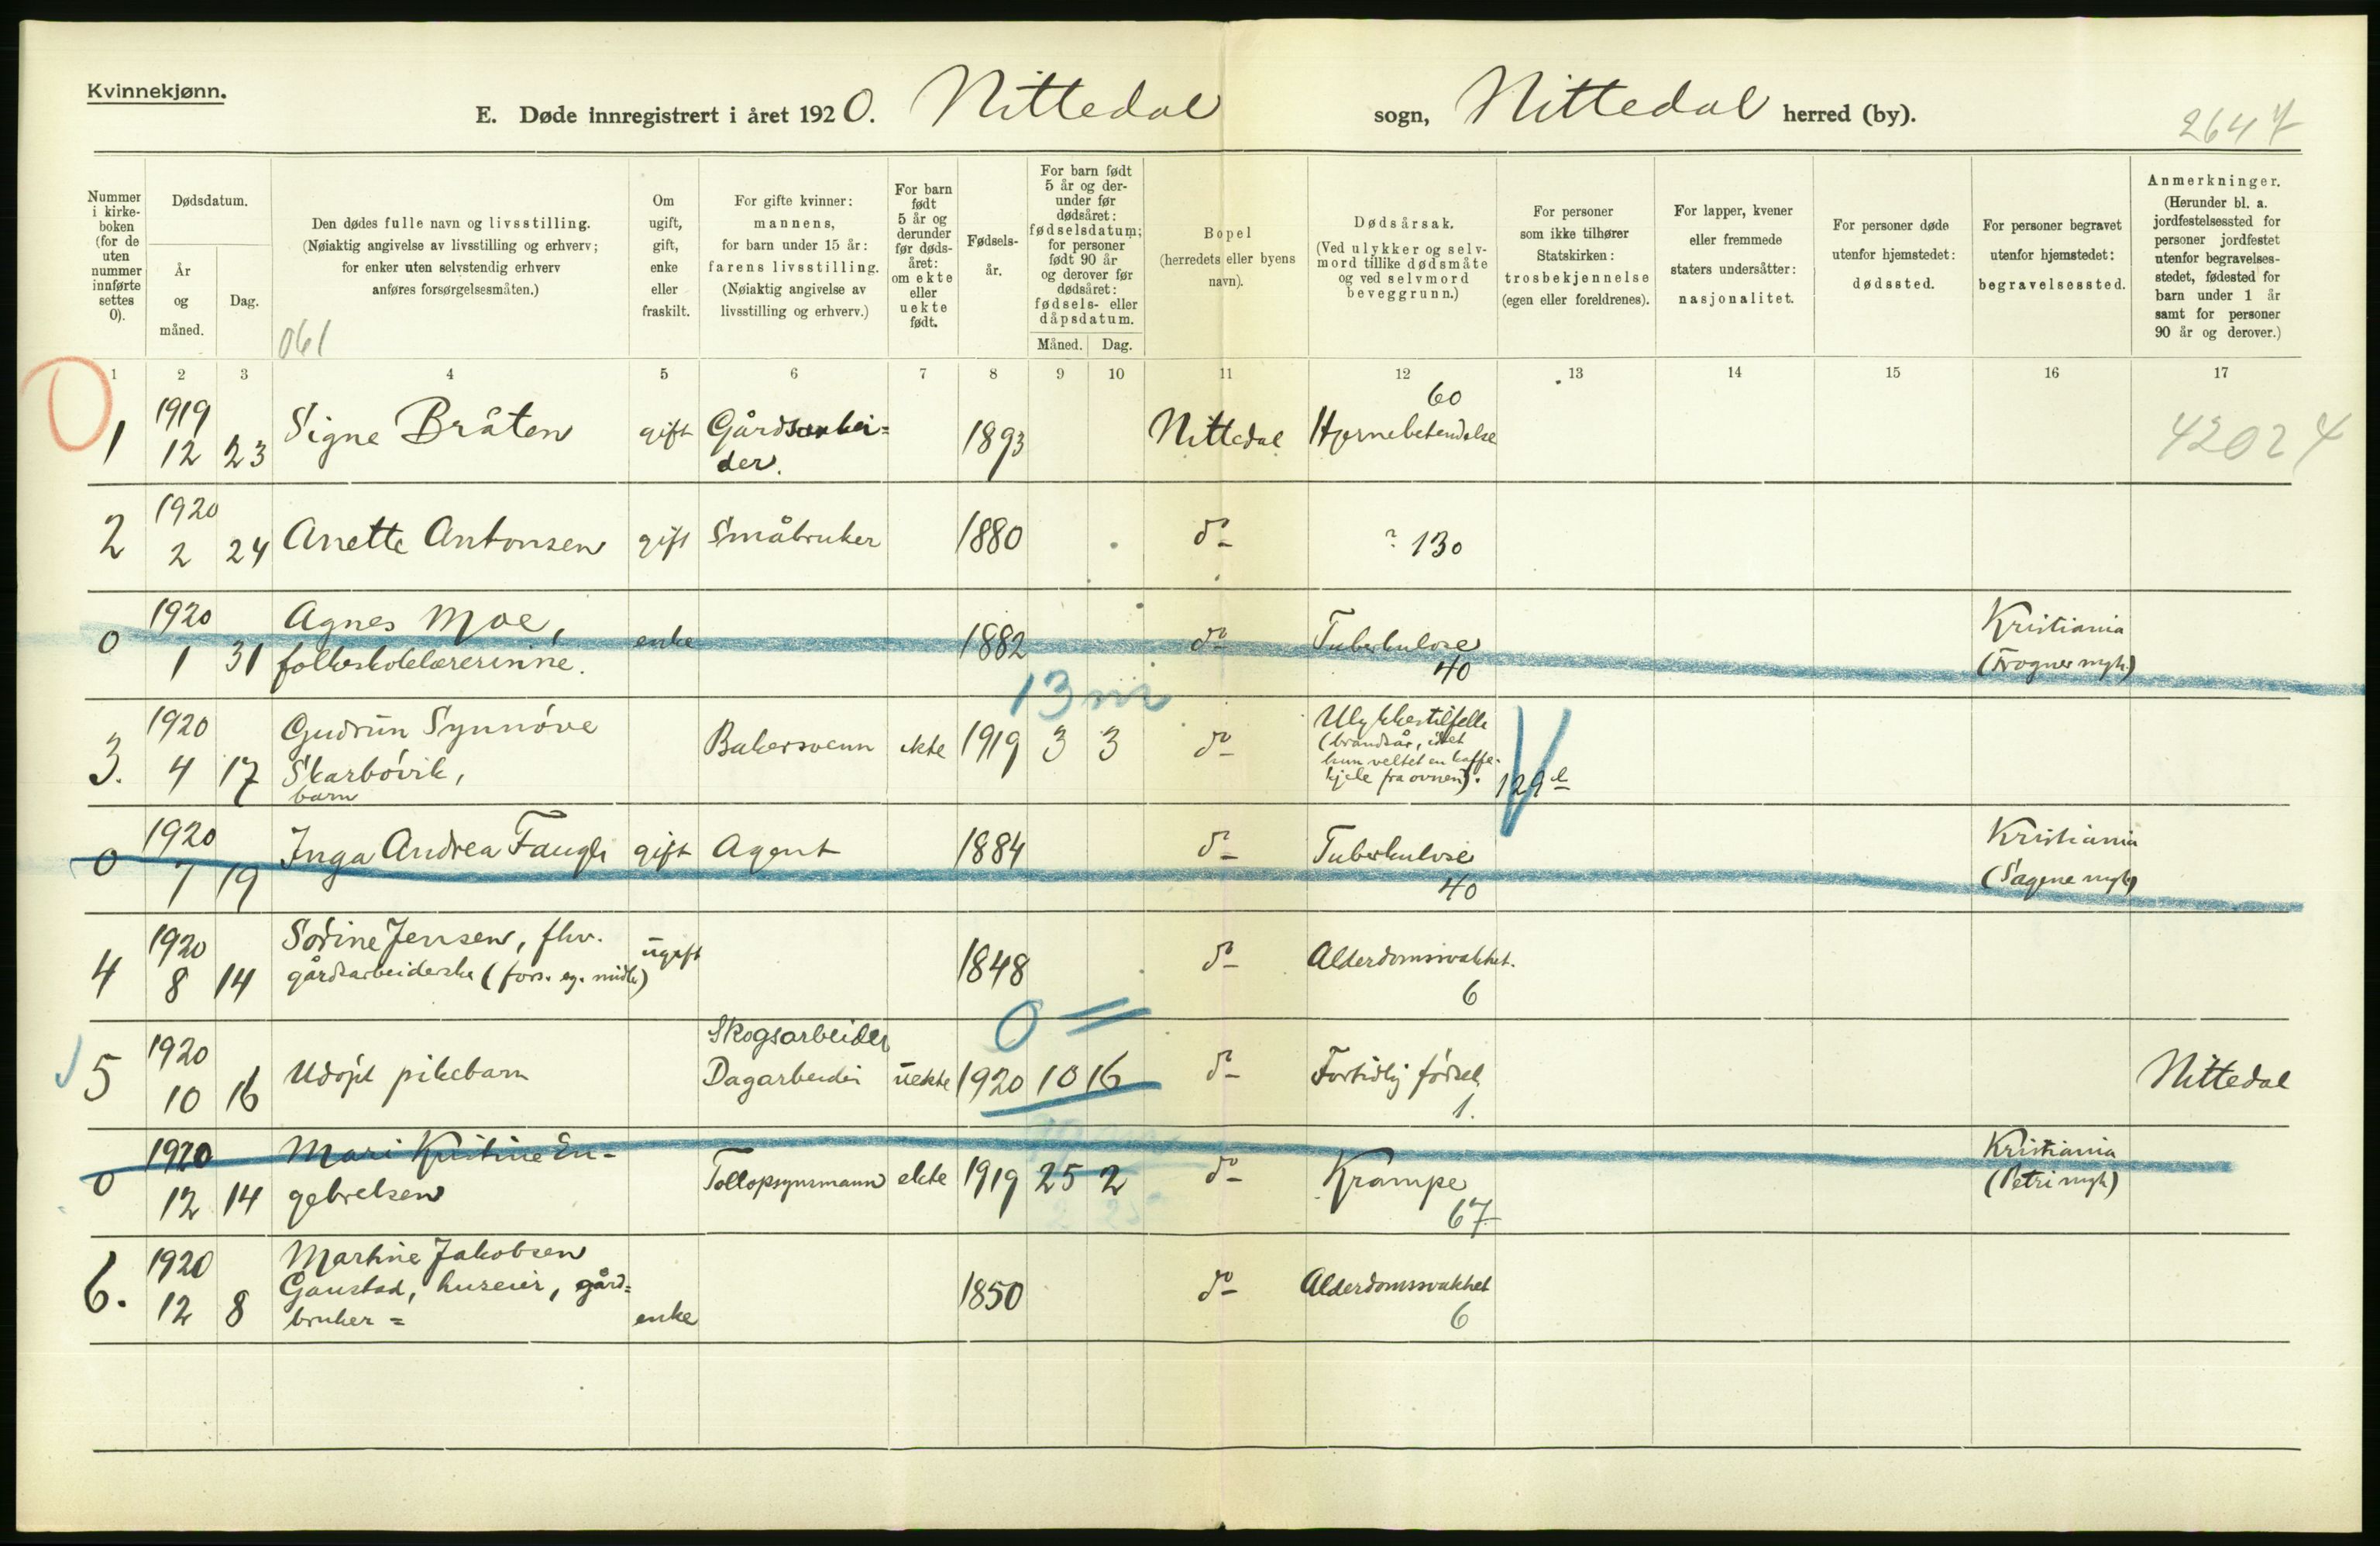 Kvinnekjønn.
E. Døde innregistrert i året 1920. Nittedal sogn, Nittedal herred (by).
2647
Nummer i kirke-boken (for de uten nummer innførte settes 0).
Dødsdatum.
År og måned.
Dag.
Den dødes fulle navn og livsstilling.
(Nøiaktig angivelse av livsstilling og erhverv;
for enker uten selvstendig erhverv
anføres forsørgelsesmåten.)
061
Om ugift, gift, enke eller fraskilt.
For gifte kvinner:
mannens,
for barn under 15 år:
farens livsstilling.
(Nøiaktig angivelse av
livsstilling og erhverv.)
For barn født 5 år og derunder før døds-året: om ekte eller uekte født.
Fødsels-år.
For barn født 5 år og der-under før dødsåret: fødselsdatum; for personer født 90 år og derover før dødsåret: fødsels- eller dåpsdatum.
Måned. Dag.
Bopel
(herredets eller byens
navn).
Dødsårsak.
(Ved ulykker og selv-
mord tillike dødsmåte
og ved selvmord
beveggrunn.)
For personer
som ikke tilhører
Statskirken:
trosbekjennelse
(egen eller foreldrenes).
For lapper, kvener
eller fremmede
staters undersåtter:
nasjonalitet.
For personer døde
utenfor hjemstedet:
dødssted.
For personer begravet
utenfor hjemstedet:
begravelsessted.
Anmerkninger.
(Herunder bl. a.
jordfestelsessted for
personer jordfestet
utenfor begravelses-
stedet, fødested for
barn under 1 år
samt for personer
90 år og derover.)
1 2 3 4 5 6 7 8 9 10 11 12 13 14 15 16 17
0
1 1919 12 23 Signe Bråten gift Gårdsarbei-
der. 1893 Nittedal Hjernebetendelse 60 42024
2 1920 2 24 Anette Antonsen gift Småbruker 1880 do ? 130
0 1920 1 31 Agnes Moe,
folkeskolelærerinne. enke 1882 do Tuberkulose 40 Kristiania
(Frogner mgh.)
13 m
3. 1920 4 17 Gudrun Synnöve
Skarbövik,
barn Bakersvenn ekte 1919 3 3 do Ulykkestilfelle
(brandsår, idet
hun veltet en kaffe-
kjele fra ovnen). 129
0 1920 7 19 Inga Andrea Faugli gift Agent 1884 do Tuberkulose 40 Kristiania
(Sagene mgh)
4 1920 8 14 Sörine Jensen, fhv.
gårdsarbeiderske (fors. eg. midler) ugift 1848 do Alderdomssvakhet. 6
0
5 1920 10 16 Udöpt pikebarn Skogsarbeider
Dagarbeider uekte 1920 10 16 do Fortidlig födsel 1. Nittedal
0 1920 12 14 Mari Kristine En-
gebretsen Tollopsynsmann ekte 1919 25 2 do Krampe 67 Kristiania
(Petri mgh)
2 25
6. 1920 12 8 Martine Jakobsen
Gaustad, huseier, gård-
bruker = enke 1850 do Alderdomssvakhet 6